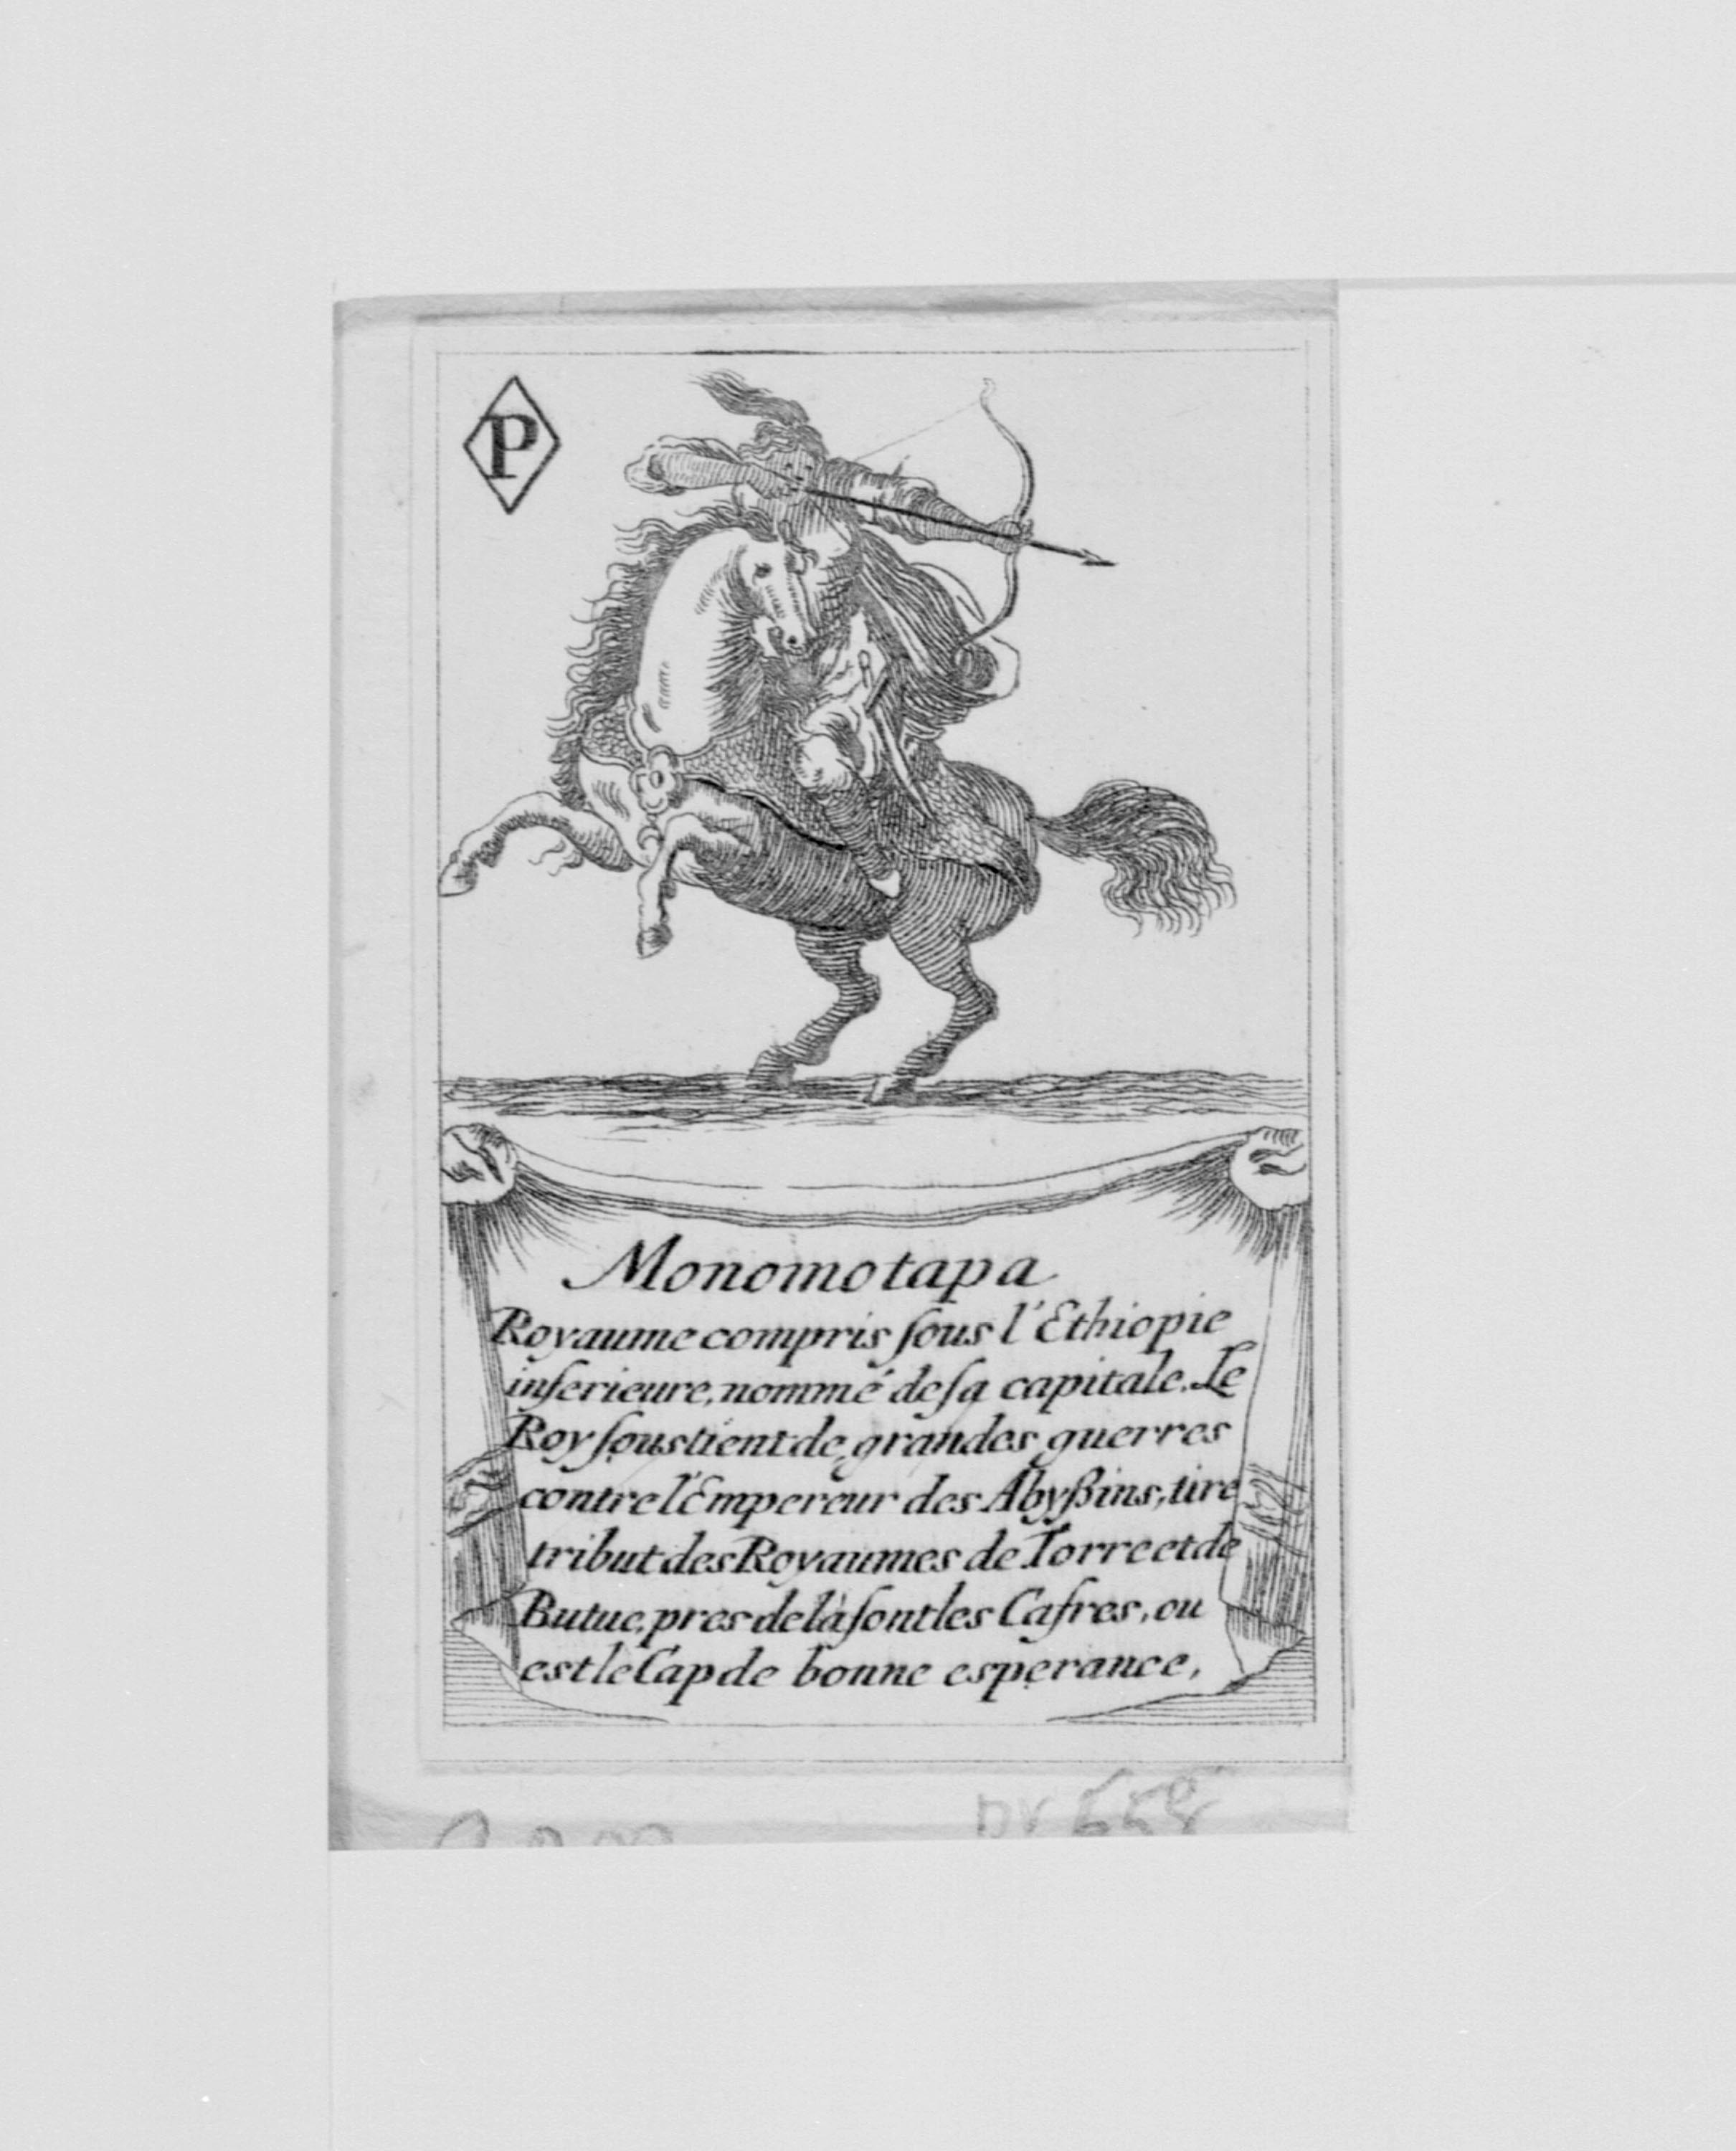 P
Monomotapa
Royaume compris sous l'Ethiopie
inferieure, nommé de sa capitale. Le
Roy soustient de grandes guerres
contre l'Empereur des Abyßins, tire
tribut des Royaumes de Torre et de
Butue, pres de là sont les Cafres, ou
est le Cap de bonne esperance,
DV 558